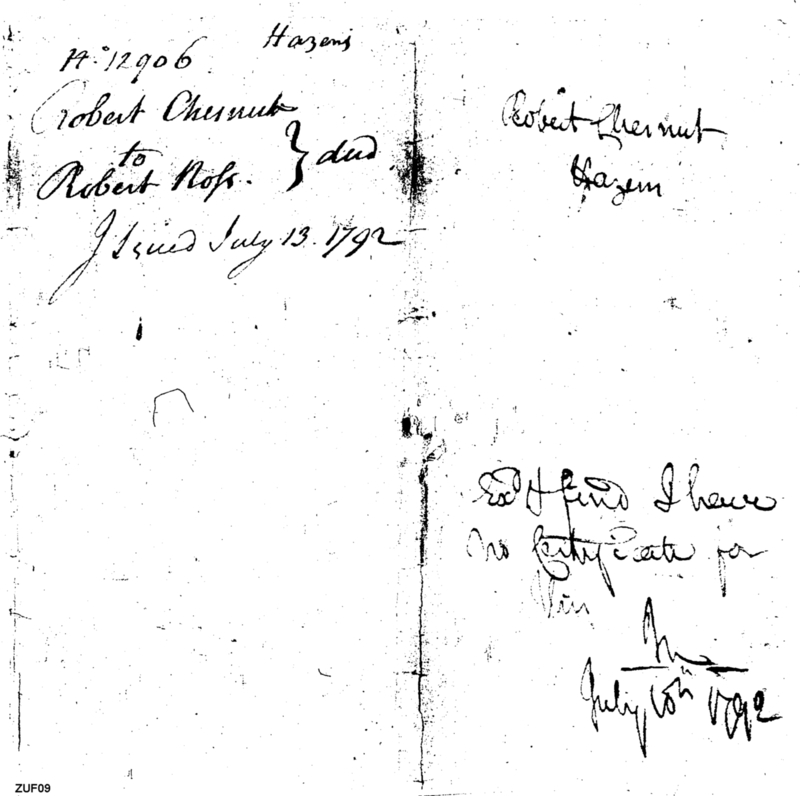 No 12906 Hazens
Robert Chesnut
to } deed
Robert Ross.
Issued July 13. 1792
Robert Chesnut
Hazens
Exd & find I have
no Certificate for
him
July 10th 1792
ZUF09